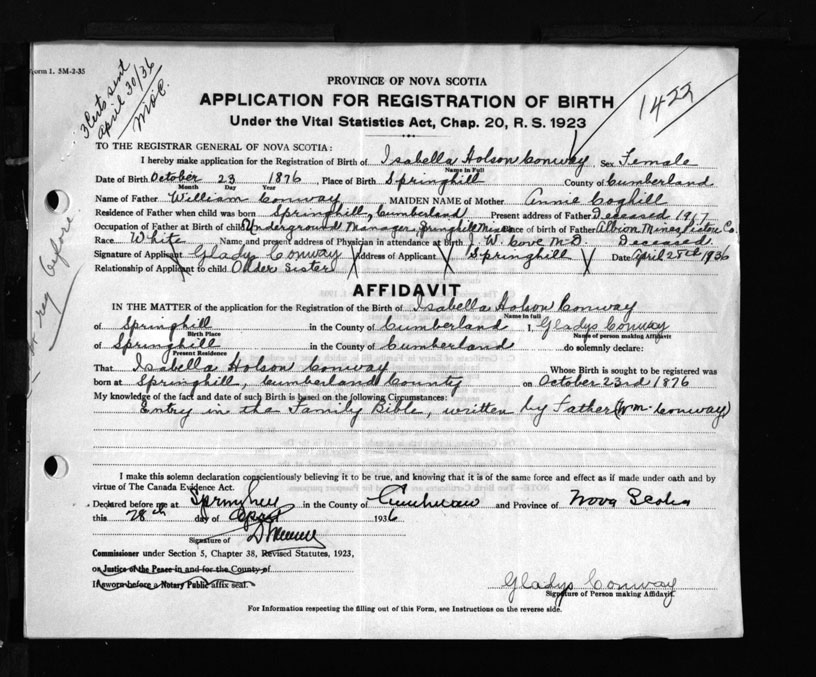 Form 1. 5M-3-35
3 Certs sent
April 30/36
1422
PROVINCE OF NOVA SCOTIA
APPLICATION FOR REGISTRATION OF BIRTH
Under the Vital Statistics Act, Chap. 20, R. S. 1923
TO THE REGISTRAR GENERAL OF NOVA SCOTIA:
I hereby make application for the Registration of Birth of Isabella Holson Conway Sex Female
Name in Full
Date of Birth October 23 1876, Place of Birth Springhill County of Cumberland
Month Day Year
Name of Father William Conway MAIDEN NAME of Mother Annie Coghill
Residence of Father when child was born Springhill, Cumberland Present address of Father Deceased 1917
Occupation of Father at Birth of child Underground Manager, Springhill Mines Place of birth of Father Albion Mines Pictou Co.
Race White Name and present address of Physician in attendance at birth W. Cove M.D. Deceased
Signature of Applicant Gladys Conway Address of Applicant Springhill Date April 28th 1936
Relationship of Applicant to child Older Sister
AFFIDAVIT
IN THE MATTER of the application for the Registration of the Birth of Isabella Holson Conway
Name in full
of Springhill in the County of Cumberland I, Gladys Conway
Birth Place Name of person making Affidavit
of Springhill in the County of Cumberland do solemnly declare:
Present Residence
That Isabella Holson Conway Whose Birth is sought to be registered was
born at Springhill, Cumberland County on October 23rd 1876
My knowledge of the fact and date of such Birth is based on the following Circumstances:
Entry in the Family Bible, written by Father (Wm. Conway)
I make this solemn declaration conscientiously believing it to be true, and knowing that it is of the same force and effect as if made under oath and by
virtue of The Canada Evidence Act.
Declared before me at Springhill in the County of Cumberland and Province of Nova Scotia
this 28th day of April 1936
Signature of
Commissioner under Section 5, Chapter 38, Revised Statutes, 1923,
or Justice of the Peace in and for the County of
If sworn before a Notary Public affix seal.
Gladys Conway
Signature of Person making Affidavit.
For Information respecting the filling out of this Form, see Instructions on the reverse side.
reg before